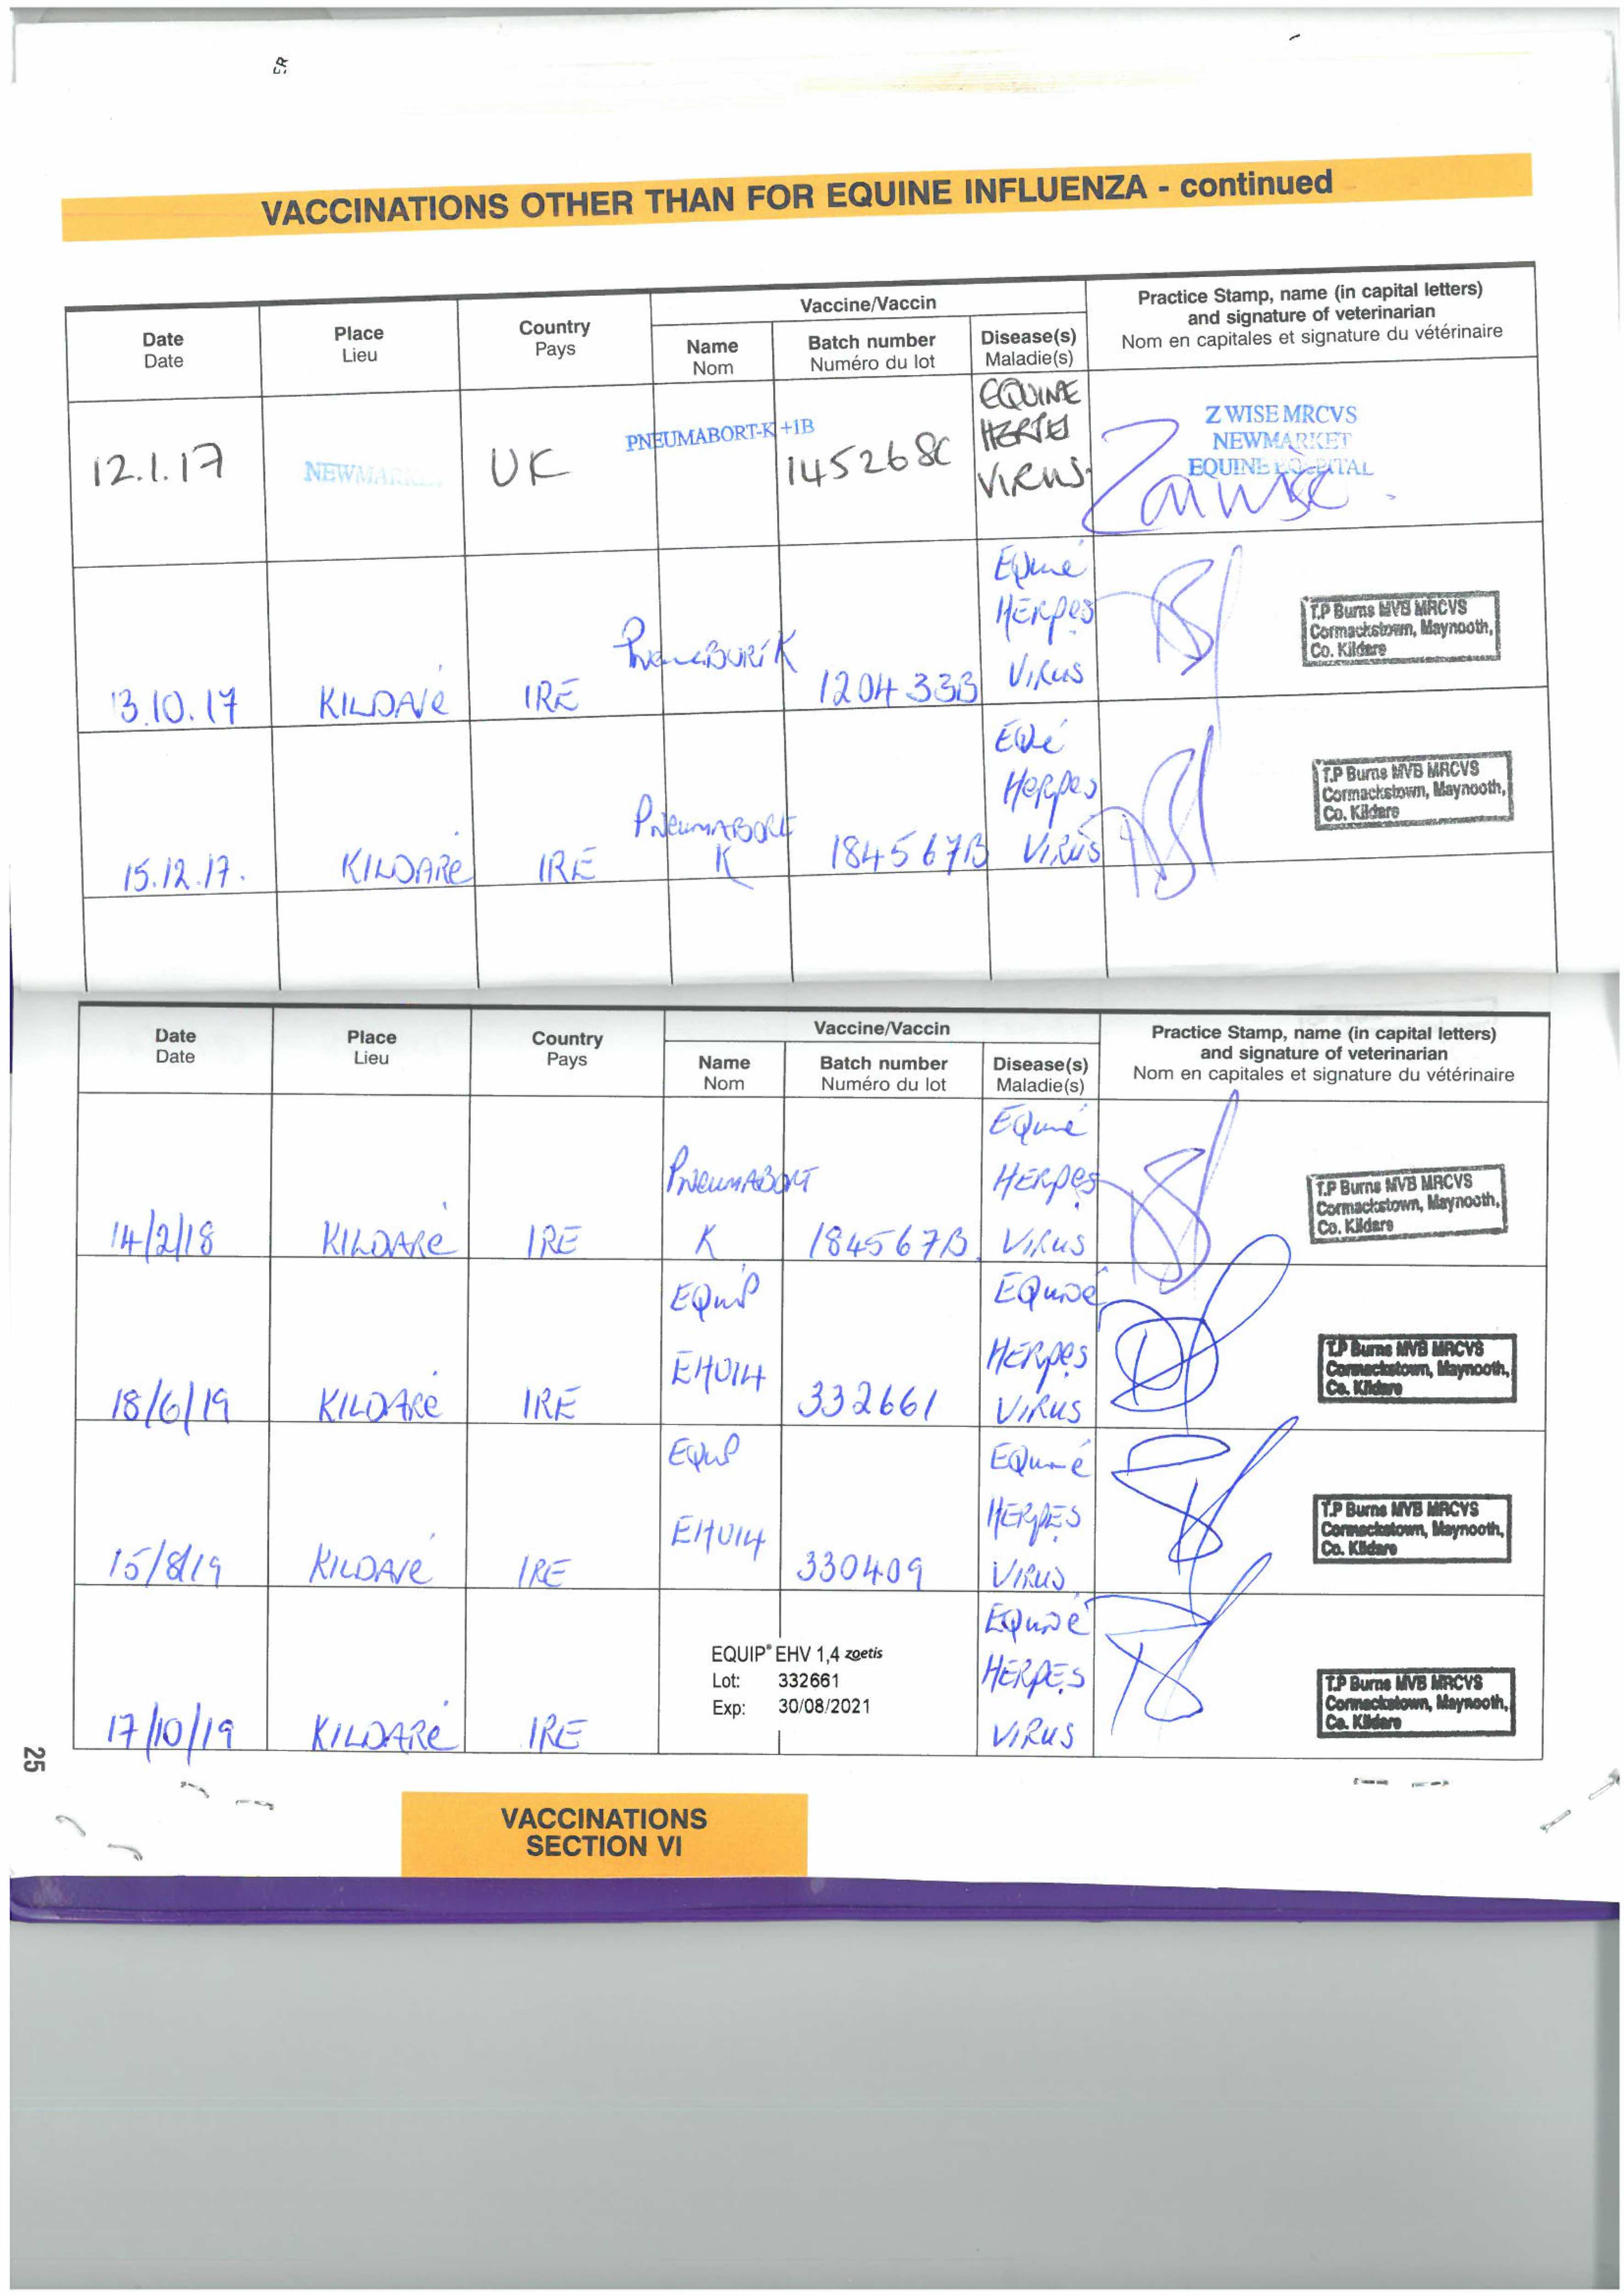 VACCINATIONS OTHER THAN FOR EQUINE INFLUENZA - continued
Date
Date
Place
Lieu
Country
Pays
Vaccine/Vaccin
Name
Nom
Batch number
Numéro du lot
Disease(s)
Maladie(s)
Practice Stamp, name (in capital letters)
and signature of veterinarian
Nom en capitales et signature du vétérinaire
12.1.17
UK
PNEUMABORT-K +1B
145268C
EQUINE
VIRUS
Z WISE MRCVS
NEWMARKET
EQUINE HOSPITAL
13.10.17
KILDARE
IRE
120433B
Equine
HERPES
VIRUS
T.P Burns MVB MRCVS
Cormackstown, Maynooth,
Co. Kildare
15.12.17.
KILDARE
IRE
PNEUMABORT
K
184567B
HERPES
VIRUS
T.P Burns MVB MRCVS
Cormackstown, Maynooth,
Co. Kildare
Date
Date
Place
Lieu
Country
Pays
Vaccine/Vaccin
Name
Nom
Batch number
Numéro du lot
Disease(s)
Maladie(s)
Practice Stamp, name (in capital letters)
and signature of veterinarian
Nom en capitales et signature du vétérinaire
14/2/18
KILDARE
IRE
PNEUMABORT
K
184567B
EQUINE
HERPES
VIRUS
T.P Burns MVB MRCVS
Cormackstown, Maynooth,
Co. Kildare
18/6/19
KILDARE
IRE
EQUIP
EHV14
332661
EQUINE
HERPES
VIRUS
T.P Burns MVB MRCVS
Cormackstown, Maynooth,
Co. Kildare
15/8/19
KILDARE
IRE
EQUIP
EHV14
330409
EQUINE
HERPES
VIRUS
T.P Burns MVB MRCVS
Cormackstown, Maynooth,
Co. Kildare
17/10/19
KILDARE
IRE
EQUIP® EHV 1,4 zoetis
Lot: 332661
Exp: 30/08/2021
EQUINE
HERPES
VIRUS
T.P Burns MVB MRCVS
Cormackstown, Maynooth,
Co. Kildare
25
VACCINATIONS
SECTION VI